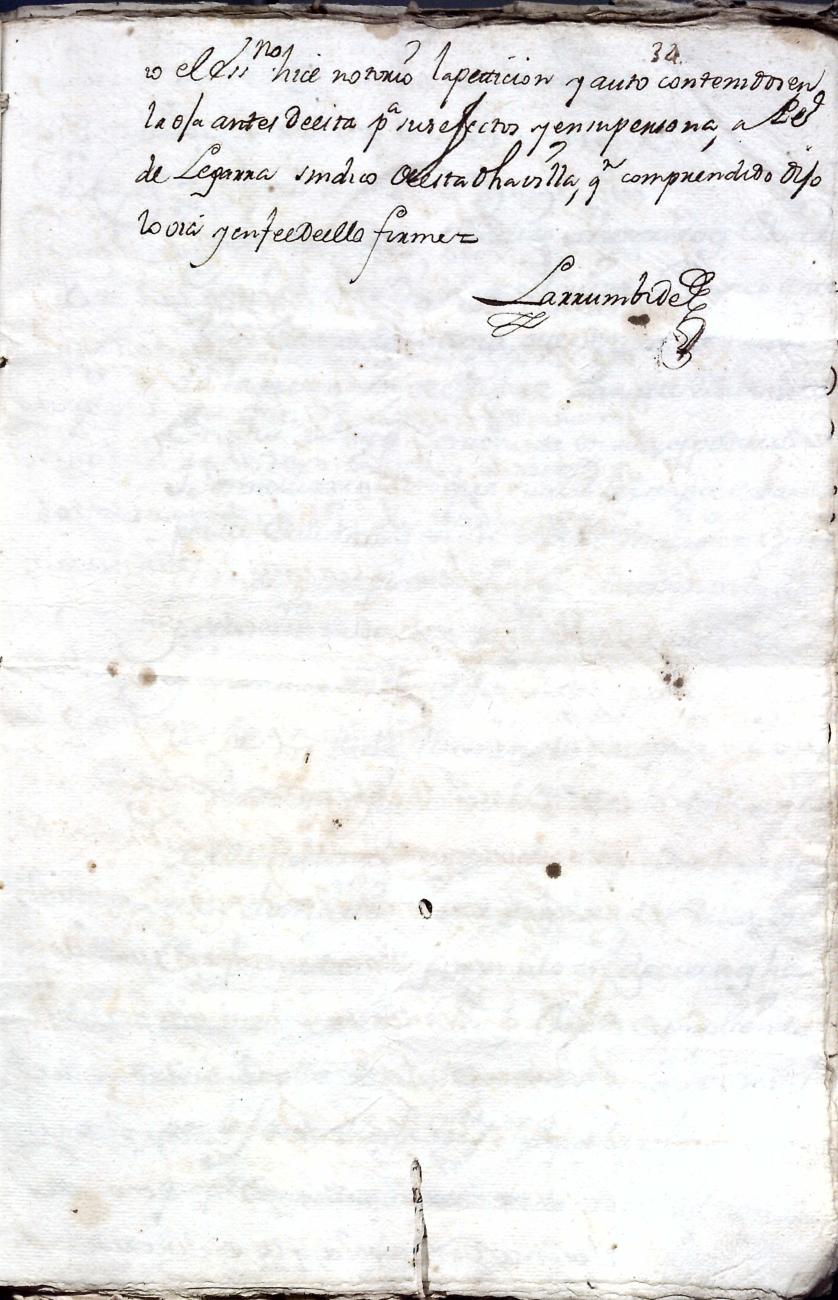 34
io el Ess.no hice notorio la petticion y auto contenidos en
la oja antes de esta p.a sus efectos y en su persona, a Pe.d
de Legarra sindico de esta dha villa, q.n comprendido dijo
lo oia y en fee de ello firme =
Larrumbide